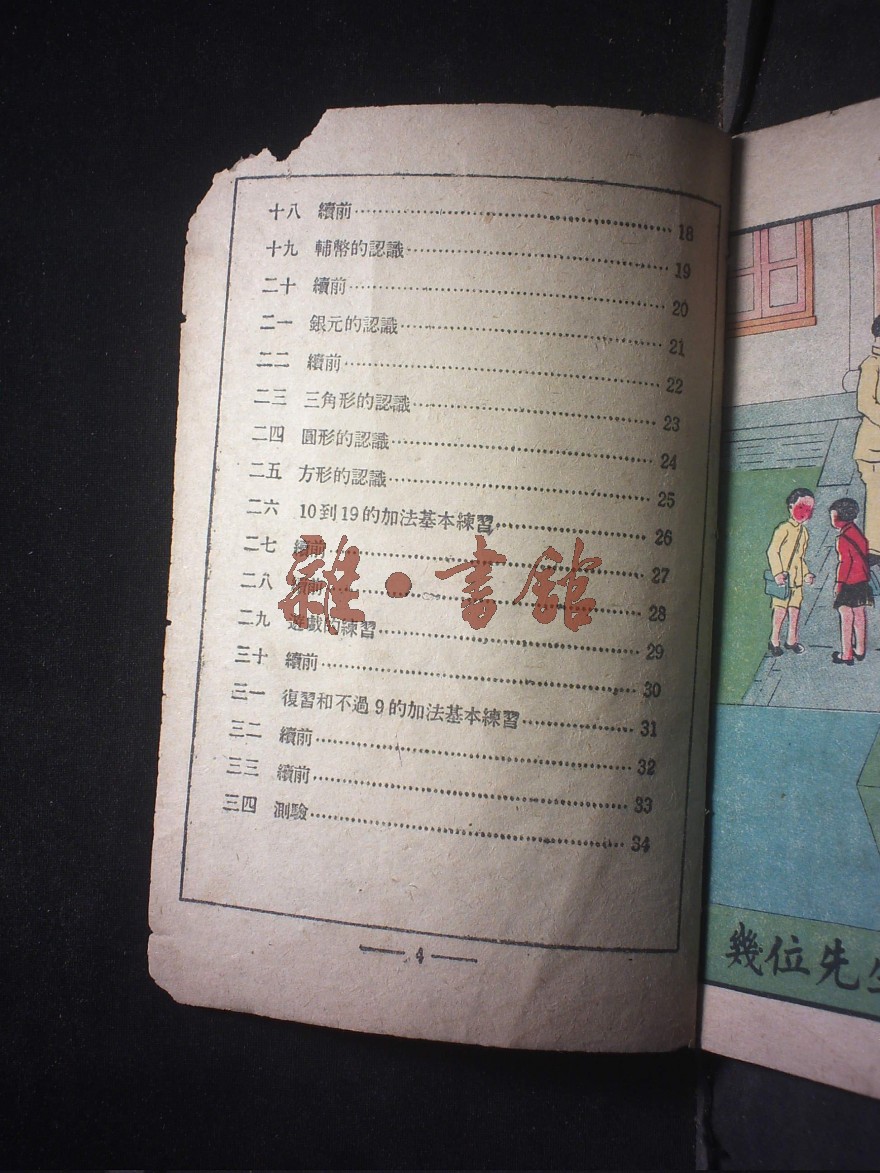 十八 續前 18
十九 輔幣的認識 19
二十 續前 20
二一 銀元的認識 21
二二 續前 22
二三 三角形的認識 23
二四 圓形的認識 24
二五 方形的認識 25
二六 10到19的加法基本練習 26
二七 續前 27
二八 續前 28
二九 遊戲的練習 29
三十 續前 30
三一 復習和不過9的加法基本練習 31
三二 續前 32
三三 續前 33
三四 測驗 34
4
雜·書館
幾位先生